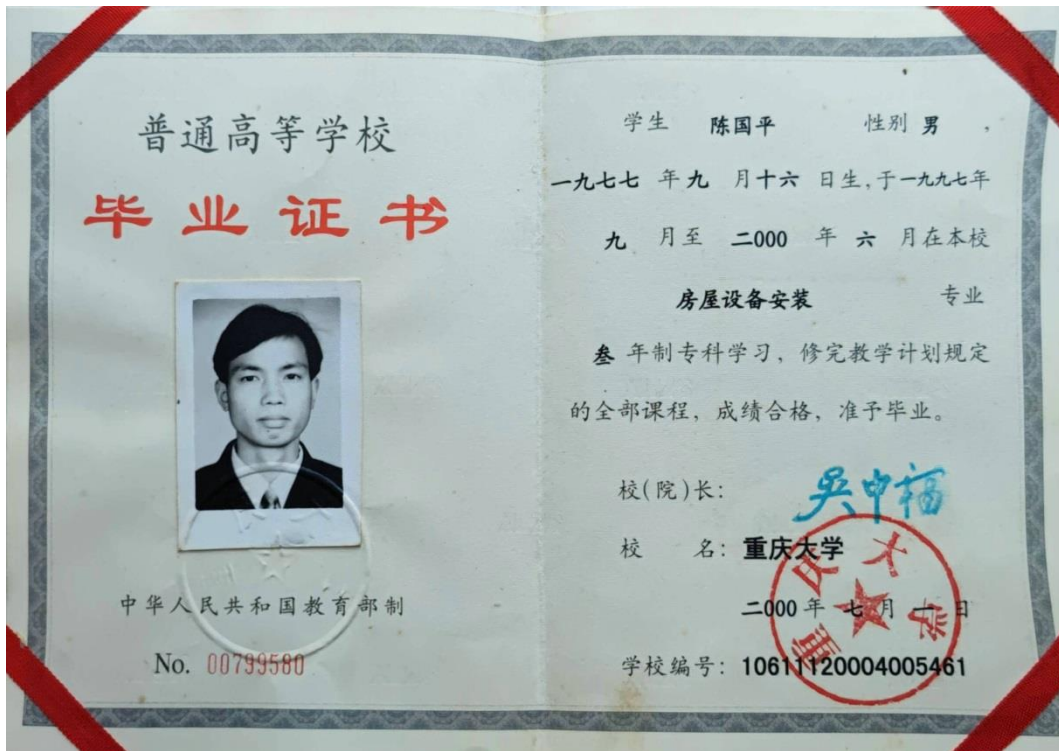 普通高等学校
毕业证书
中华人民共和国教育部制
No. 00799580
学生 陈国平 性别 男 ，
一九七七 年 九 月 十六 日生，于一九九七年
九 月至 二000 年 六 月在本校
房屋设备安装 专业
叁 年制专科学习，修完教学计划规定
的全部课程，成绩合格，准予毕业。
校(院)长： 吴中福
校 名：重庆大学
二000 年 七 月 一 日
重庆大学
学校编号：10611120004005461